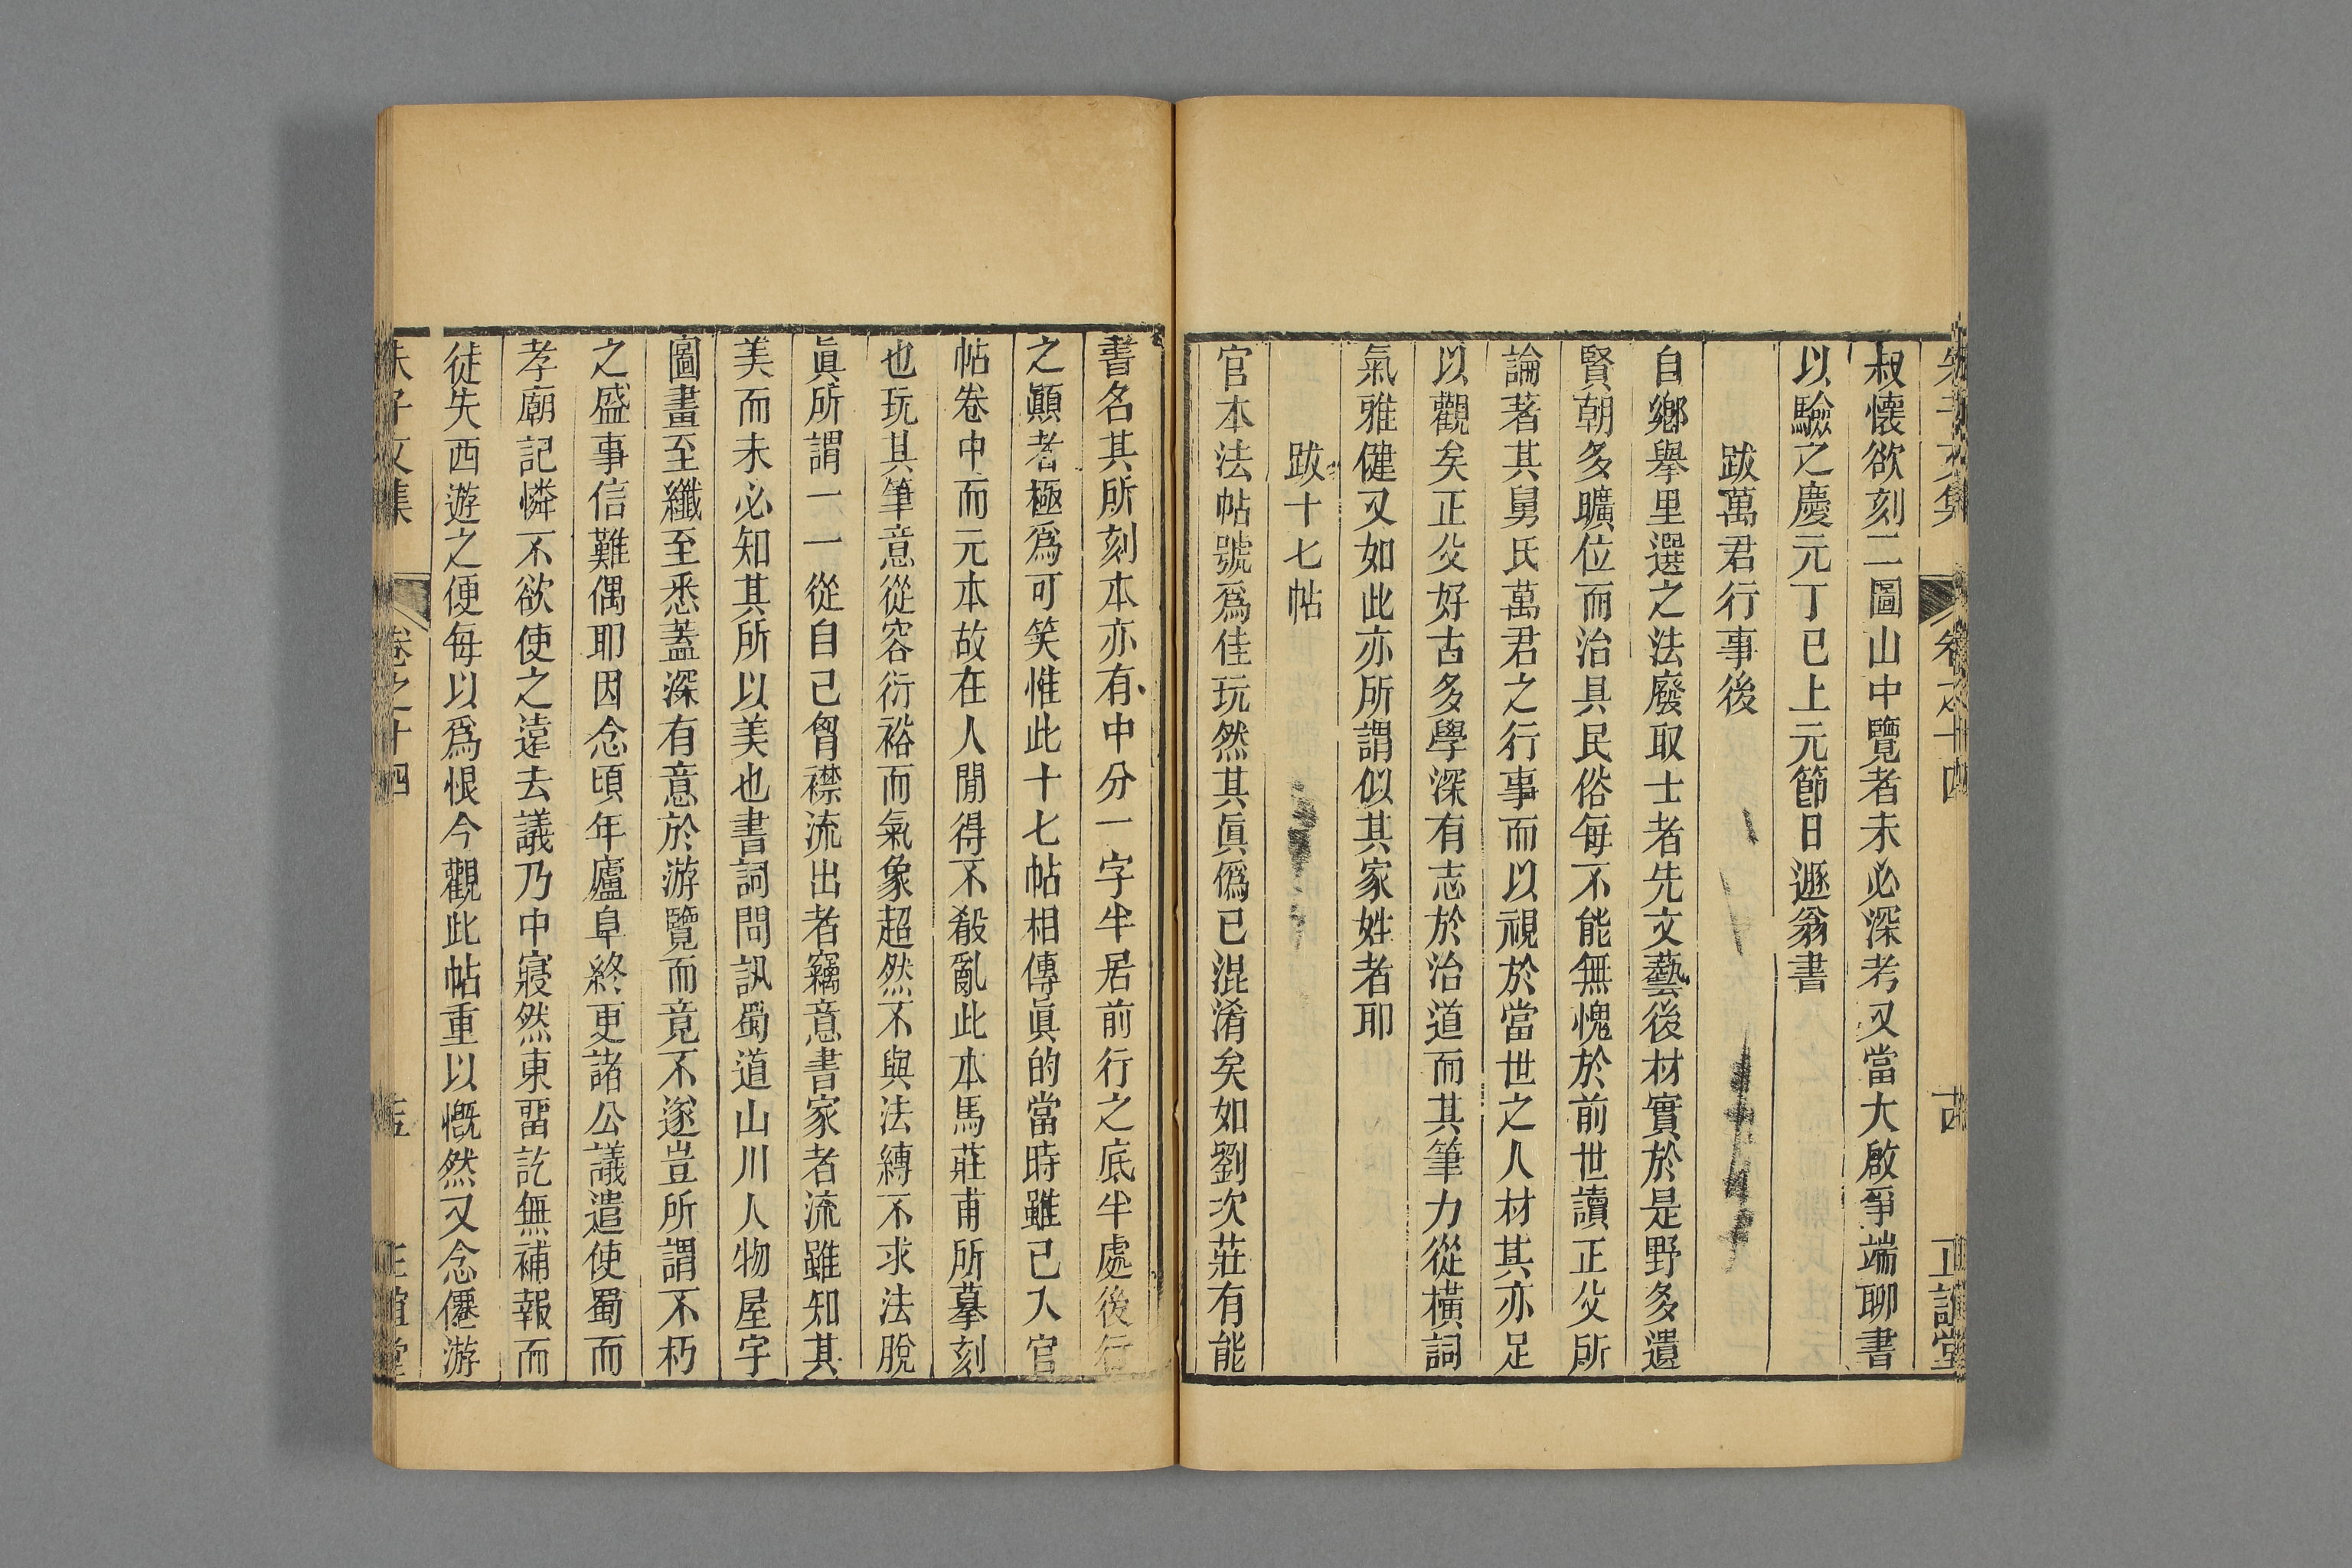 朱子文集 卷之十四 古 正誼堂
叔懷欲刻二圖山中覽者未必深考又當大啟爭端聊書
以驗之慶元丁巳上元節日遯翁書
跋萬君行事後
自鄉舉里選之法廢取士者先文藝後材實於是野多遺
賢朝多曠位而治具民俗每不能無愧於前世讀正父所
論著其舅氏萬君之行事而以視於當世之人材其亦足
以觀矣正父好古多學深有志於治道而其筆力從橫詞
氣雅健又如此亦所謂似其家姓者耶
跋十七帖
官本法帖號爲佳玩然其眞僞已混淆矣如劉次莊有能
書名其所刻本亦有中分一字半居前行之底半處後行
之顚者極爲可笑惟此十七帖相傳眞的當時雖已入官
帖卷中而元本故在人閒得不殽亂此本馬莊甫所摹刻
也玩其筆意從容衍裕而氣象超然不與法縛不求法脫
眞所謂一一從自己胷襟流出者竊意書家者流雖知其
美而未必知其所以美也書詞問訊蜀道山川人物屋宇
圖畫至纖至悉蓋深有意於游覽而竟不遂豈所謂不朽
之盛事信難偶耶因念頃年廬阜終更諸公議遣使蜀而
孝廟記憐不欲使之遠去議乃中寢然東畱訖無補報而
徒失西遊之便每以爲恨今觀此帖重以慨然又念僊游
朱子文集 卷之十四 正誼堂